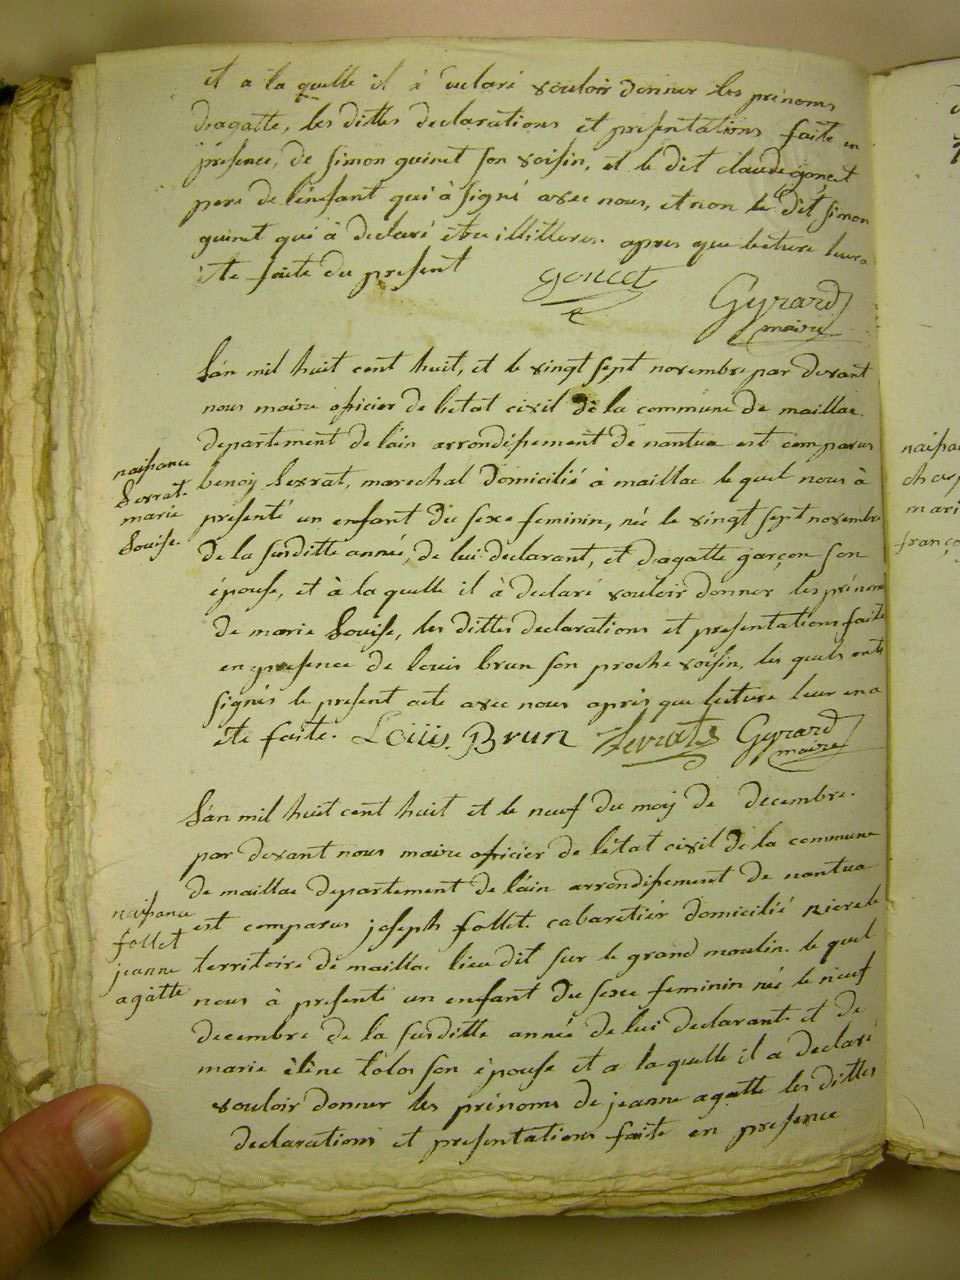 et a la quelle il à declaré vouloir donner les prénoms
d'agatte, les dittes declarations et presentations faite en
présence, de simon guinet son voisin, et le dit claude goncet
pere de l'enfant qui à signé avec nous, et non le dit simon
guinet qui à declaré etre illitteres. apres que lecture leur a
ete faite du present goncet
Gyrard
maire
L'an mil huit cent huit, et le vingt sept novembre par devant
nous maire oficier de letat civil de la commune de maillac
departement de l'ain arrondissement de nantua est comparus
naissance
benoy Sevrat, marechal domicilié à maillac le quel nous à
Sevrat
marie
présenté un enfant du sexe feminin, née le vingt sept novembre
Louise
de la susditte année, de lui declarant, et d'agatte garçon son
épouse, et à la quelle il à declaré vouloir donner les prénoms
de marie Louise, les dittes declarations et presentations faite
en presence de louis brun son proche voisin, les quels ont
signés le present acte avec nous après que lecture leur en a
ete faite. Loüis Brun Gyrard
maire
L'an mil huit cent huit et le neuf du moy de decembre.
par devant nous maire oficier de l'état civil de la commune
de maillac departement de l'ain arrondissement de nantua
naissance
est comparus joseph follet cabaretiér domicilié riere le
follet
jeanne
territoire de maillac lieu dit sur le grand moulin. le quel
agatte
nous à présenté un enfant du sexe feminin née le neuf
decembre de la susditte année de lui declarant et de
marie élène son épouse et a la quelle il a declaré
vouloir donner les prénoms de jeanne agatte les dittes
declarations et presentations faite en presence
naissa
mari
franço